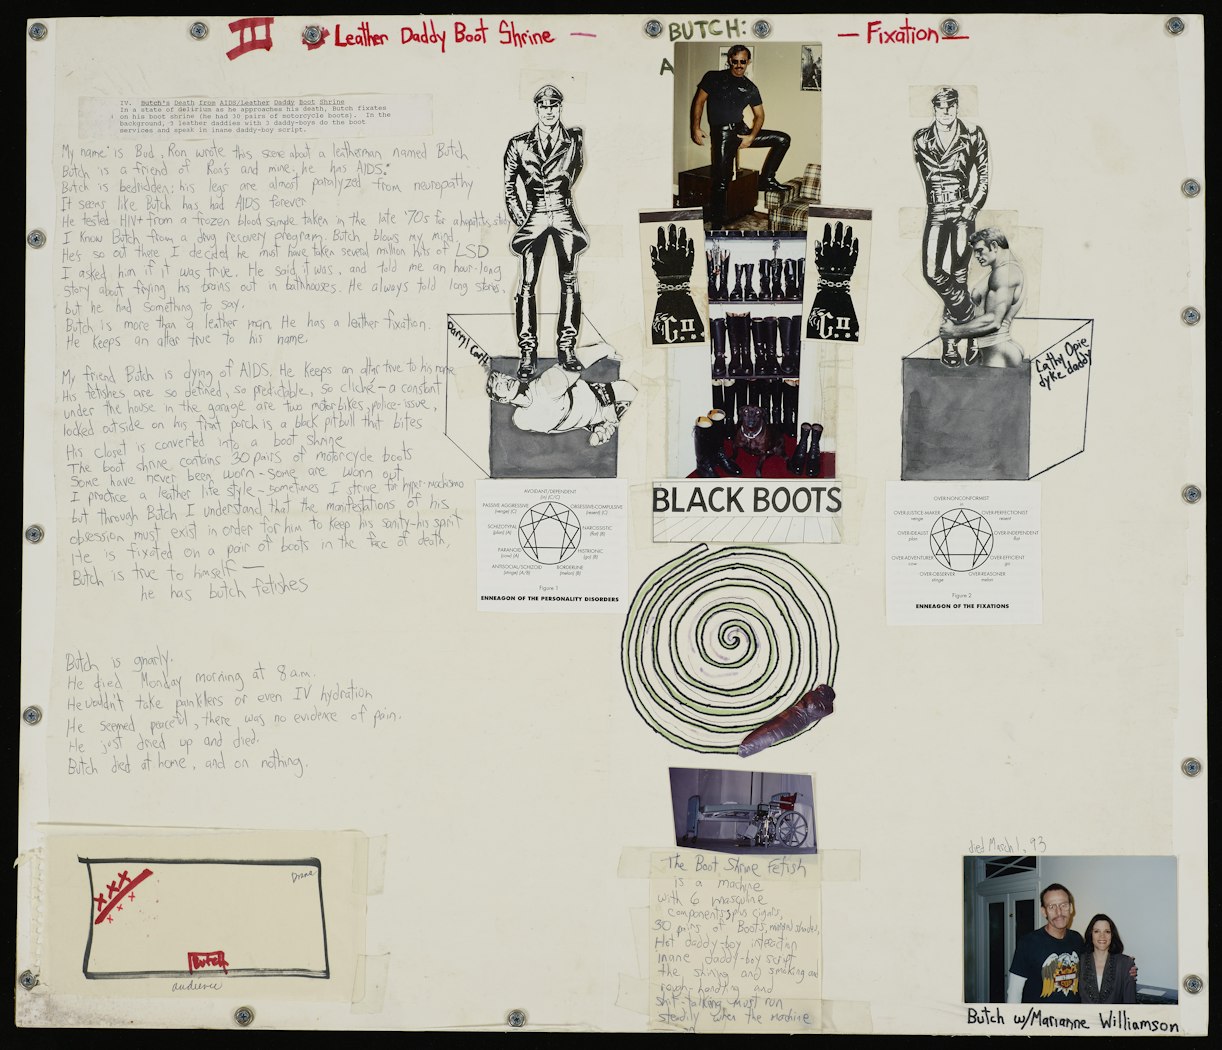 III Leather Daddy Boot Shrine —
BUTCH:
A
— Fixation —
IV. Butch's Death from AIDS/Leather Daddy Boot Shrine
In a state of delirium as he approaches his death, Butch fixates
on his boot shrine (he had 30 pairs of motorcycle boots). In the
background, 3 leather daddies with 3 daddy-boys do the boot
services and speak in inane daddy-boy script.
My name is Bud, Ron wrote this scene about a leatherman named Butch
Butch is a friend of Ron's and mine, he has AIDS.
Butch is bedridden; his legs are almost paralyzed from neuropathy
It seems like Butch has had AIDS forever
He tested HIV+ from a frozen blood sample taken in the late '70s for a hepatitis study
I know Butch from a drug recovery program. Butch blows my mind.
He's so out there I decided he must have taken several million hits of LSD
I asked him if it was true. He said it was, and told me an hour-long
story about frying his brains out in bathhouses. He always told long stories,
but he had something to say.
Butch is more than a leather man. He has a leather fixation.
He keeps an alter true to his name.
My friend Butch is dying of AIDS. He keeps an alter true to his name
His fetishes are so defined, so predictable, so cliché – a constant
under the house in the garage are two motorbikes, police-issue,
locked outside on his front porch is a black pitbull that bites
His closet is converted into a boot shrine
The boot shrine contains 30 pairs of motorcycle boots
Some have never been worn – some are worn out
I practice a leather life style – sometimes I strive for hyper-machismo
but through Butch I understand that the manifestations of his
obsession must exist in order for him to keep his sanity – his spirit
He is fixated on a pair of boots in the face of death,
Butch is true to himself —
he has butch fetishes
Butch is gnarly.
He died Monday morning at 8 a.m.
He wouldn't take painkillers or even IV hydration
He seemed peaceful, there was no evidence of pain.
He just dried up and died.
Butch died at home, and on nothing.
Diane
Butch
audience
Darryl Carlton
Cathy Opie
dyke daddy
C.II
C.II
BLACK BOOTS
AVOIDANT/DEPENDENT
PASSIVE AGGRESSIVE
OBSESSIVE-COMPULSIVE
SCHIZOTYPAL
NARCISSISTIC
PARANOID
HISTRIONIC
ANTISOCIAL/SCHIZOID
BORDERLINE
Figure 1
ENNEAGON OF THE PERSONALITY DISORDERS
OVER-NONCONFORMIST
OVER-JUSTICE-MAKER
OVER-PERFECTIONIST
OVER-IDEALIST
OVER-INDEPENDENT
OVER-ADVENTURER
OVER-EFFICIENT
OVER-OBSERVER
OVER-REASONER
Figure 2
ENNEAGON OF THE FIXATIONS
The Boot Shrine Fetish
is a machine
with 6 masculine
components, plus cigars,
30 pairs of Boots, mirrored shades,
Hot daddy-boy interaction
inane daddy-boy script
the shining and smoking and
rough-handling and
shit-talking must run
steadily when the machine
died March 1, 93
Butch w/Marianne Williamson